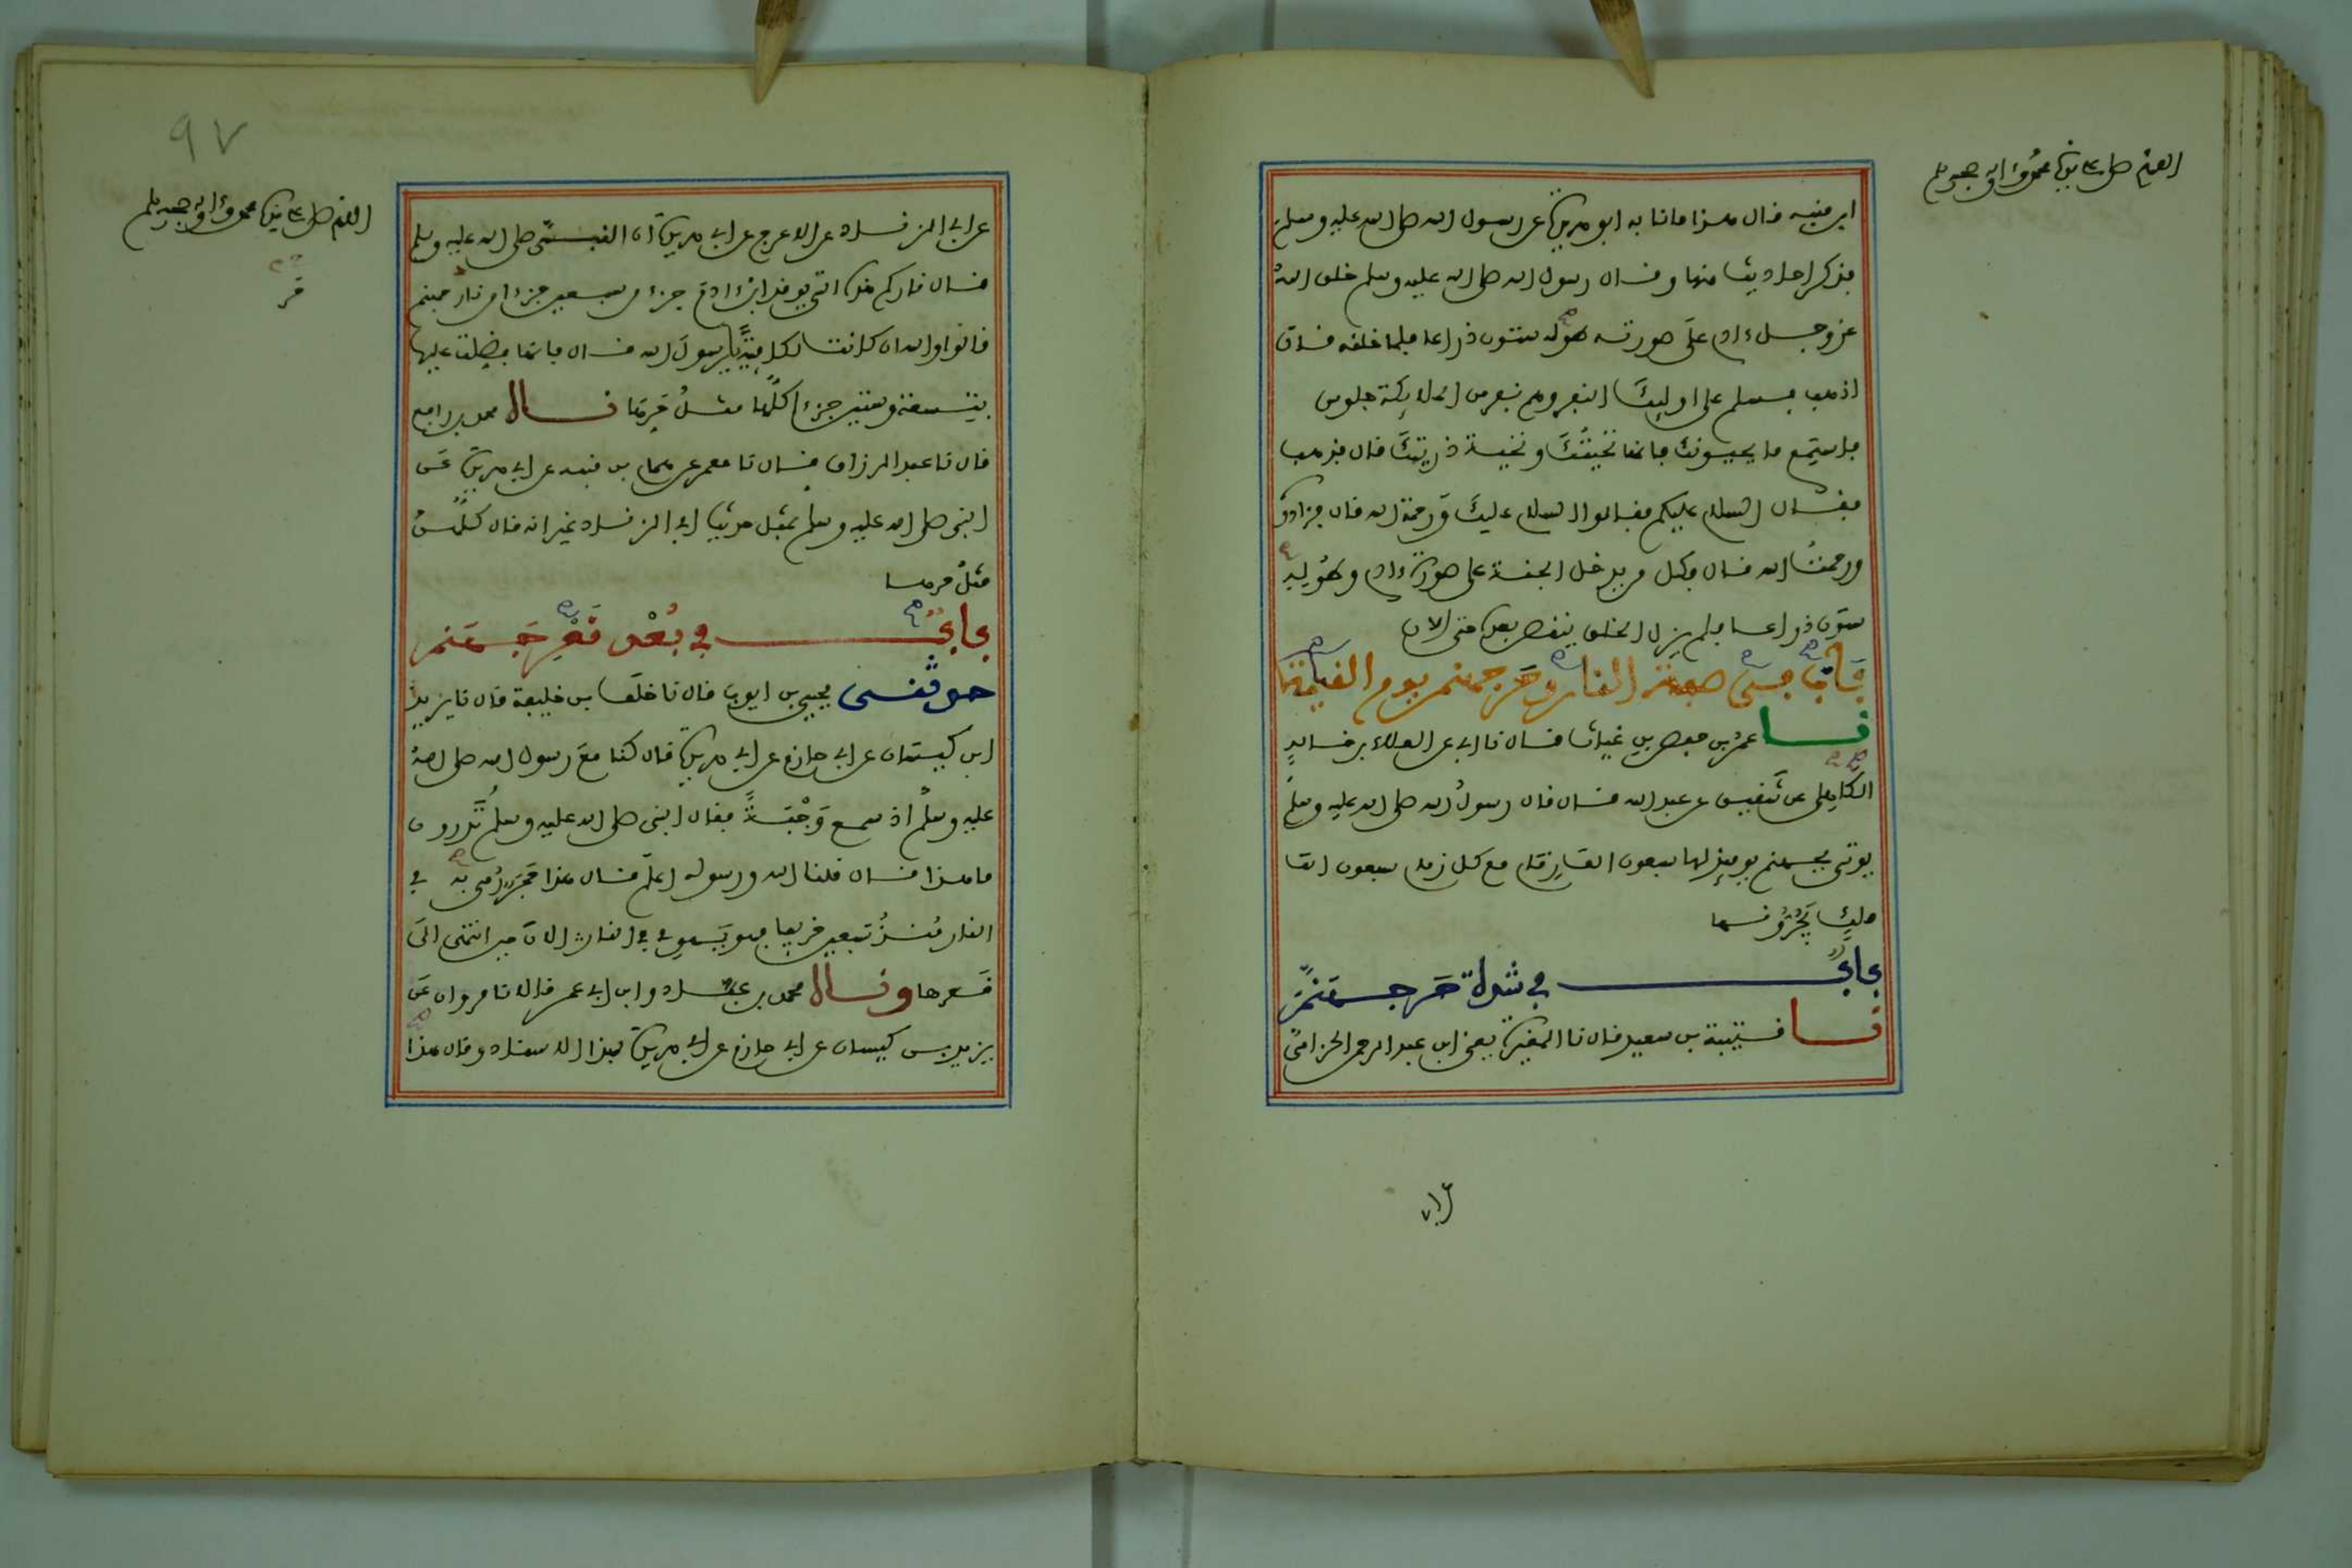 اللهم صل على نبينا محمد وءاله وصحبه وسلم
ابن منبه قال هذا ما نا به ابو هريرة عن رسول الله صلى الله عليه وسلم
فذكر احاديث منها وقال رسول الله صلى الله عليه وسلم خلق الله
عز وجل ءادم على صورته طوله ستون ذراعا فلما خلقه قال
اذهب فسلم على اوليك النفر وهم نفر من الملايكة جلوس
فاستمع ما يحيونك فانها تحيتك وتحية ذريتك قال فذهب
فقال السلام عليكم فقالوا السلام عليك ورحمة الله قال فزادوه
ورحمت الله قال فكل من يدخل الجنة على صورة ءادم وطوله
ستون ذراعا فلم يزل الخلق ينقص بعده حتى الان
باب في صفة النار وحر جهنم يوم القيمة
نا عمر بن حفص بن غياث قال نا ابي عن العلاء بن خالد
الكاهلي عن شقيق عن عبد الله قال قال رسول الله صلى الله عليه وسلم
يوتى بجهنم يوميذ لها سبعون الف زمام مع كل زمام سبعون الف
ملك يجرونها
باب في شدة حر جهنم
نا قتيبة بن سعيد قال نا المغيرة يعني ابن عبد الرحمن الحزامي
٩٧
اللهم صل على نبينا محمد وءاله وصحبه وسلم
عن ابي الزناد عن الاعرج عن ابي هريرة ان النبي صلى الله عليه وسلم
قال ناركم هذه التي يوقد ابن ءادم جزء من سبعين جزءا من نار جهنم
قالوا والله ان كانت لكافية يا رسول الله قال فانها فضلت عليها
بتسعة وستين جزءا كلها مثل حرها قال محمد بن رافع
قال نا عبد الرزاق قال نا معمر عن همام بن منبه عن ابي هريرة عن
النبي صلى الله عليه وسلم بمثل حديث ابي الزناد غير انه قال كلهن
مثل حرها
باب في بعد قعر جهنم
حدثني يحيى بن ايوب قال نا خلف بن خليفة قال نا يزيد
ابن كيسان عن ابي حازم عن ابي هريرة قال كنا مع رسول الله صلى الله
عليه وسلم اذ سمع وجبة فقال النبي صلى الله عليه وسلم تدرون
ما هذا قال قلنا الله ورسوله اعلم قال هذا حجر رمي به في
النار منذ سبعين خريفا فهو يهوي في النار الان حين انتهى الى
قعرها وقال محمد بن عباد وابن ابي عمر قالا نا مروان عن
يزيد بن كيسان عن ابي حازم عن ابي هريرة بهذا الاسناد وقال هذا